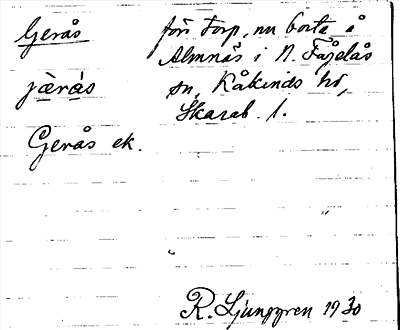 Gerås förr torp, nu borta å
Almnäs i N. Fågelås
jæ̀rås sn, Kåkinds hd,
Skarab. l.
Gerås ek.
R. Ljunggren 1930